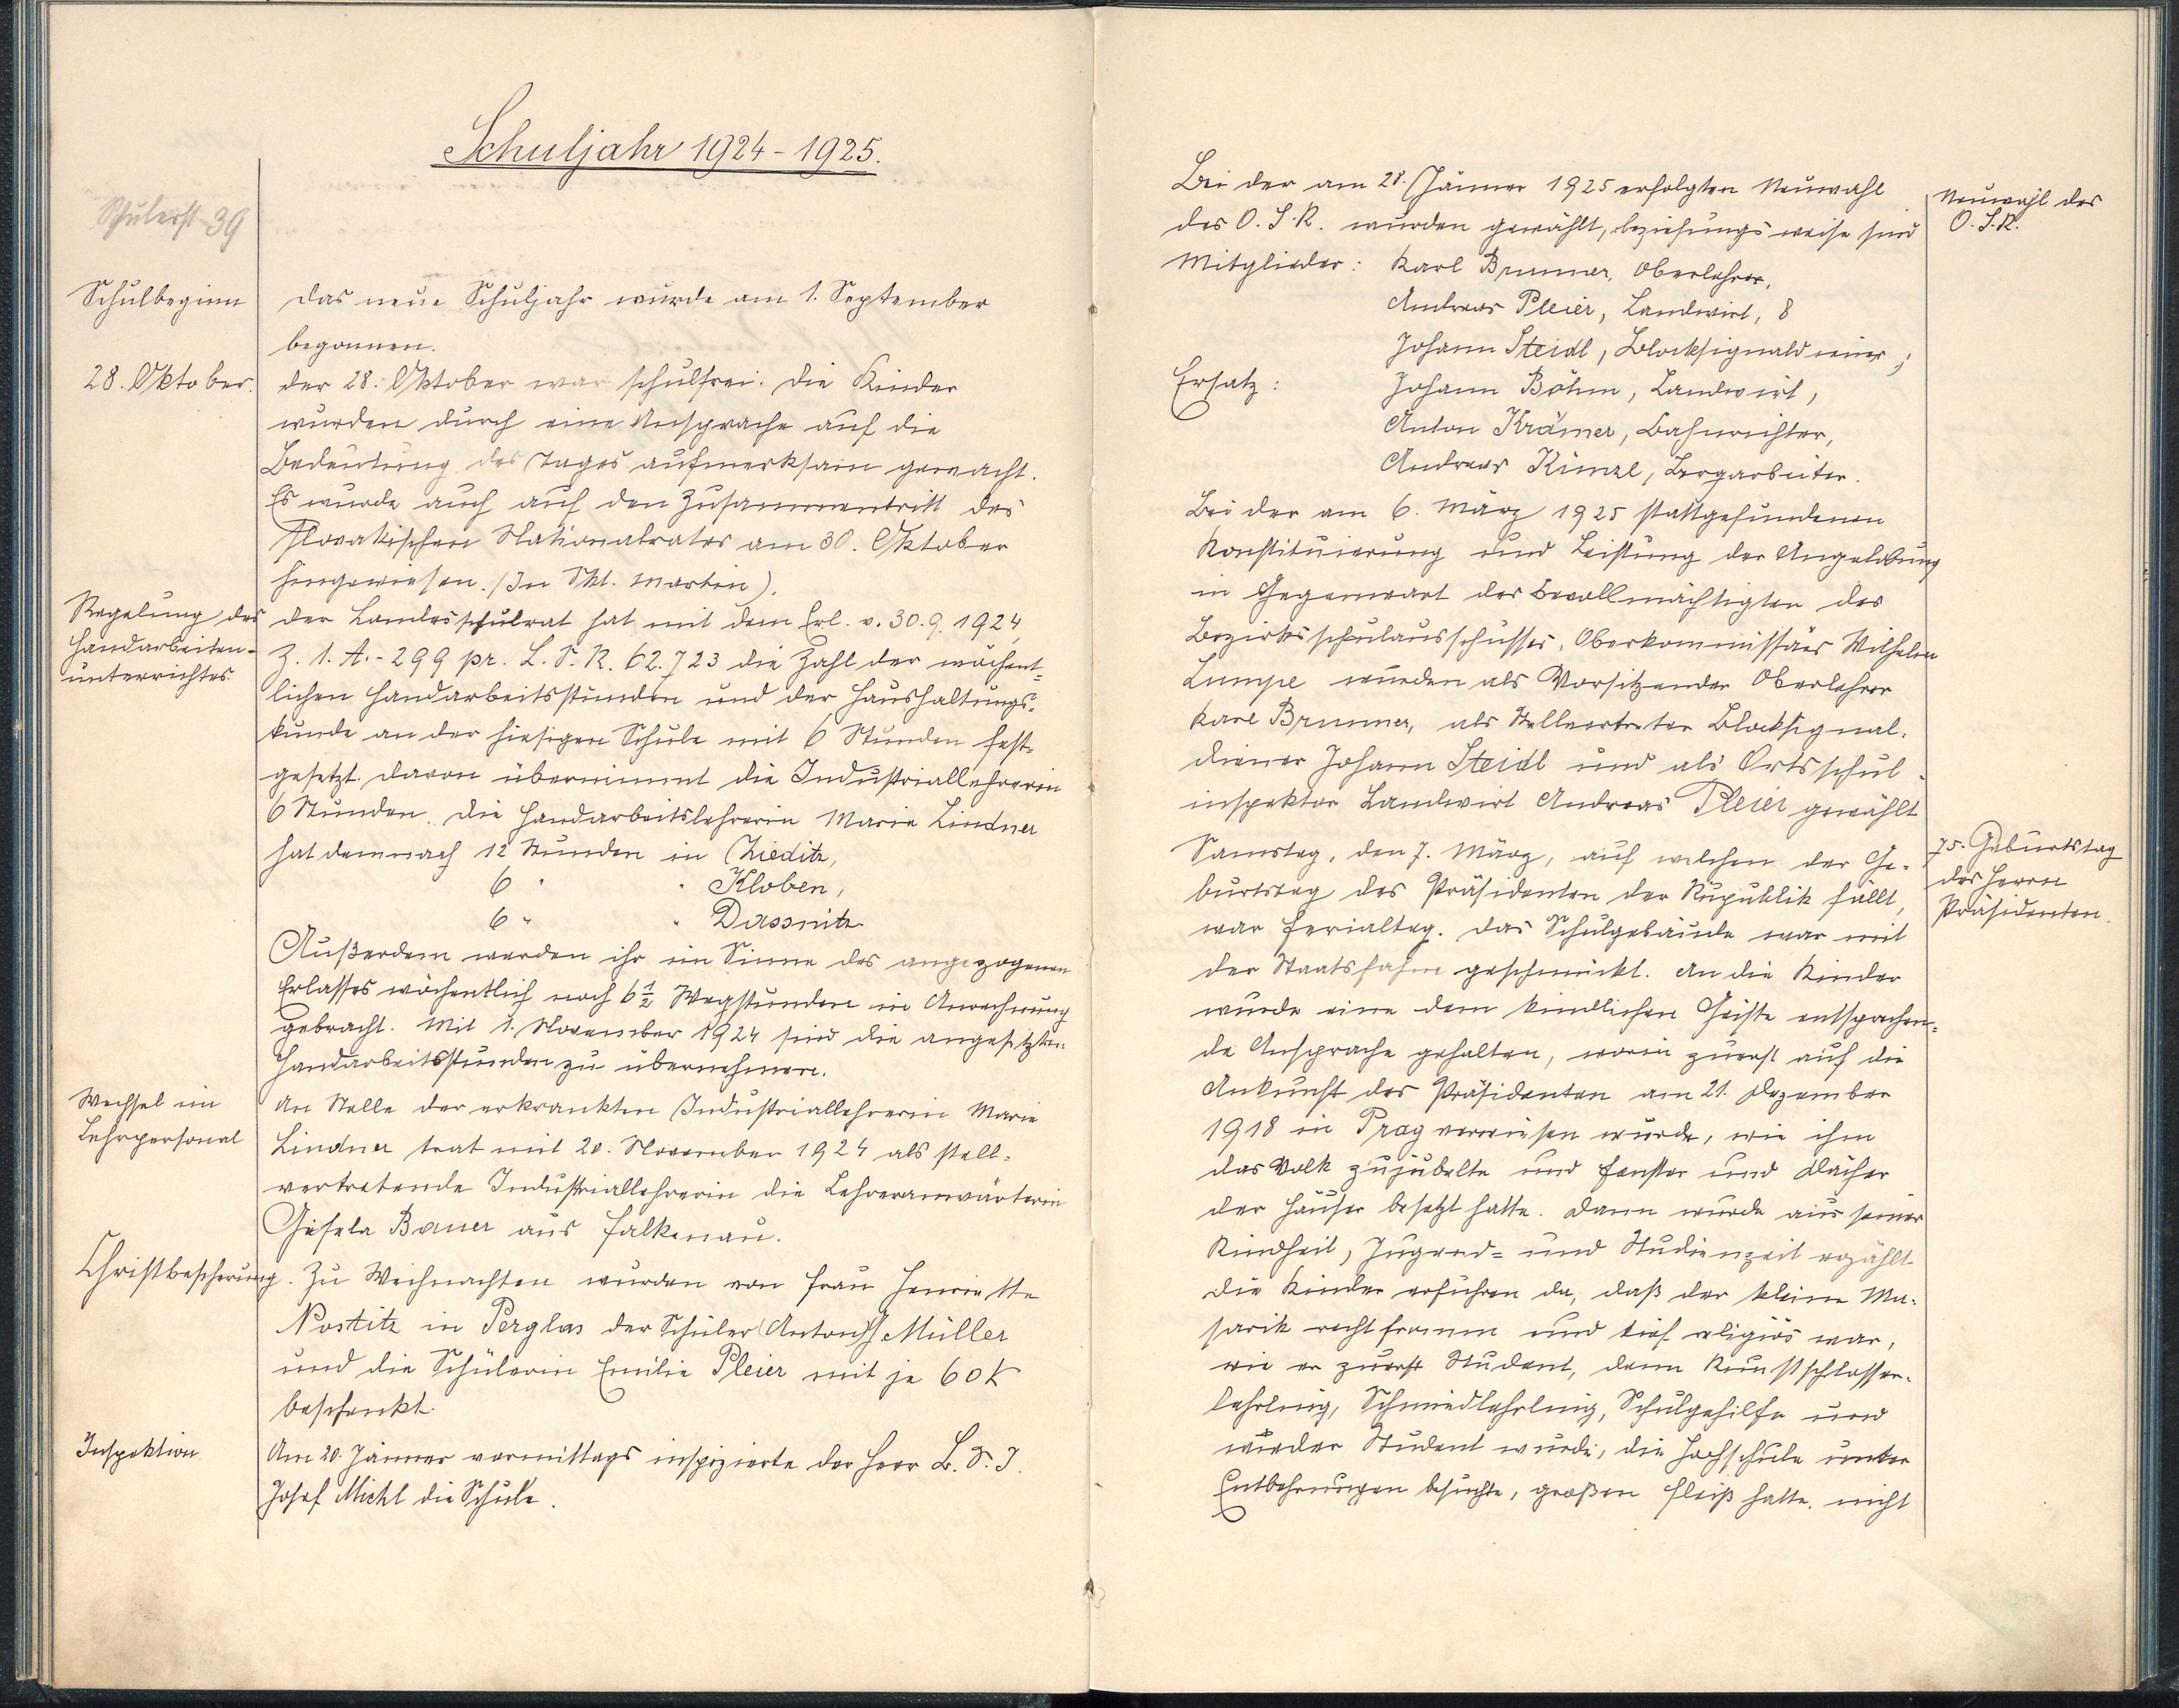 Schuljahr 1924-1925.
39
Schulbeginn
Das neue Schuljahr wurde am 1. September
begonnen.
28. Oktober.
Der 28. Oktober war schulfrei. Die Kinder
wurden durch eine Ansprache auf die
Bedeutung des Tages aufmerksam gemacht.
Es wurde auch auf den Zusammentritt des
slovakischen Nationalrates am 30. Oktober
hingewiesen. (In Skt. Martin).
Regelung des
Handarbeiten-
unterrichtes
Der Landesschulrat hat mit dem Erl. v. 30.9.1924,
Z. 1. A.-299 pr. L. S. R. 62.723 die Zahl der wöchent=
lichen Handarbeitsstunden und der Haushaltungs=
kunde an der hiesigen Schule mit 6 Stunden fest=
gesetzt. Davon übernimmt die Industriallehrerin
6 Stunden. Die Handarbeitslehrerin Marie Lindner
hat demnach 12 Stunden in Zieditz,
6 " " Kloben,
6 " " Dassnitz
Außerdem werden ihr im Sinne des angezogenen
Erlasses wöchentlich noch 6 1/2 Wegstunden in Anrechnung
gebracht. Mit 1. November 1924 sind die angesetzten
Handarbeitsstunden zu übernehmen.
Wechsel im
Lehrpersonal
An Stelle der erkrankten Industriallehrerin Marie
Lindner trat mit 20. November 1924 als stell=
vertretende Industriallehrerin die Lehreranwärterin
Gisela Bauer aus Falkenau.
Christbescherung. Zu Weihnachten wurden von Frau Henriette
Nostitz in Perglas der Schüler Anton Müller
und die Schülerin Emilie Pleier mit je 60 K
beschenkt.
Inspektion
Am 20. Jänner vormittags inspizierte der Herr B. S. I.
Josef Michl die Schule.
Bei der am 28. Jänner 1925 erfolgten Neuwahl
des O. S. R. wurden gewählt, beziehungsweise sind
Neuwahl des
O. S. R.
Mitglieder: Karl Brunner, Oberlehrer,
Andreas Pleier, Landwirt, 8
Johann Steidl, Blocksignaldiener;
Ersatz: Johann Böhm, Landwirt,
Anton Krämer, Bahnrichter,
Andreas Kunzl, Bergarbeiter.
Bei der am 6. März 1925 stattgefundenen
Konstituierung und Leistung der Angelobung
in Gegenwart des Bevollmächtigten des
Bezirksschulausschusses, Oberkommissärs Wilhelm
Lumpe wurden als Vorsitzender Oberlehrer
Karl Brunner, als Stellvertreter Blocksignal=
diener Johann Steidl und als Ortsschul=
inspektor Landwirt Andreas Pleier gewählt
75. Geburtstag
des Herrn
Präsidenten.
Samstag, den 7. März, auf welchen der Ge-
burtstag des Präsidenten der Republik fällt,
war Ferialtag. Das Schulgebäude war mit
der Staatsfahne geschmückt. An die Kinder
wurde eine dem kindlichen Geiste entsprechen=
de Ansprache gehalten, worin zuerst auf die
Ankunft des Präsidenten am 21. Dezember
1918 in Prag verwiesen wurde, wie ihm
das Volk zujubelte und Fenster und Dächer
der Häuser besetzt hatte. Dann wurde aus seiner
Kindheit, Jugend= und Studienzeit erzählt.
Die Kinder erfuhren da, daß der kleine Ma-
sarik recht fromm und tief religiös war,
wie er zuerst Student, dann Kunstschlosser-
lehrling, Schmiedlehrling, Schulgehilfe und
wieder Student wurde, die Hochschule unter
Entbehrungen besuchte, großen Fleiß hatte, nicht